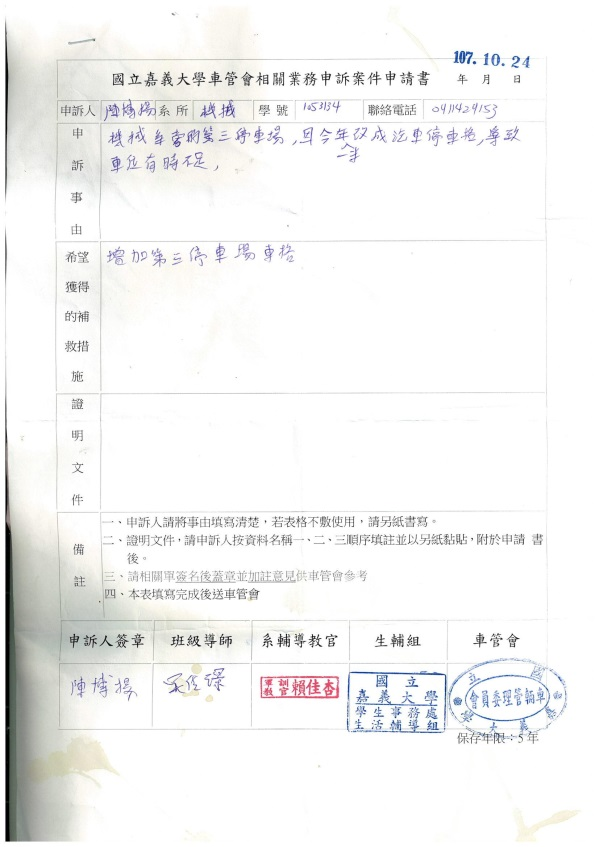 107.10.24
國立嘉義大學車管會相關業務申訴案件申請書 年 月 日
申訴人 陳博揚 系所 機械 學號 1053134 聯絡電話 0911429153
申訴事由
機械系旁的第三停車場,因今年改成汽車停車格,導致
一半
車位有時不足,
希望獲得的補救措施
增加第三停車場車格
證明文件
備註
一、申訴人請將事由填寫清楚,若表格不敷使用,請另紙書寫。
二、證明文件,請申訴人按資料名稱一、二、三順序填註並以另紙黏貼,附於申請 書
後。
三、請相關單簽名後蓋章並加註意見供車管會參考
四、本表填寫完成後送車管會
申訴人簽章 班級導師 系輔導教官 生輔組 車管會
陳博揚
軍訓教官 賴佳杏
國立
嘉義大學
學生事務處
生活輔導組
國立嘉義大學
車輛管理委員會
保存年限:5年